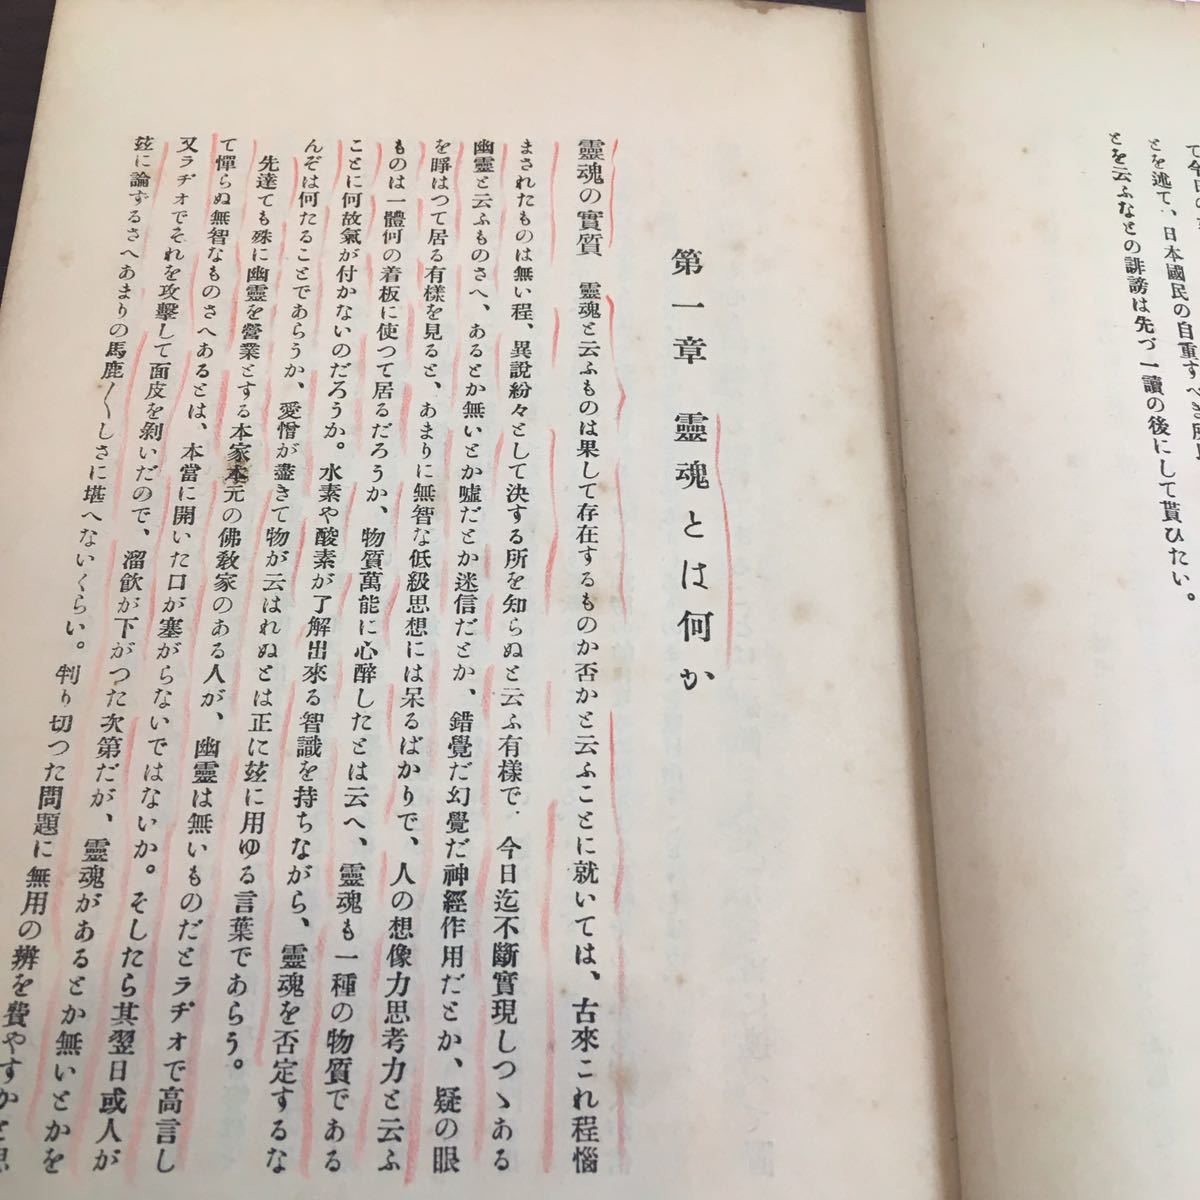 とを述て、日本國民の自重すべき所以
とを云ふなどの誹謗は先づ一讀の後にして貰ひたい。
第一章 靈魂とは何か
靈魂の實質 靈魂と云ふものは果して存在するものか否かと云ふことに就いては、古來これ程惱
まされたものは無い程、異說紛々として決する所を知らぬと云ふ有樣で、今日迄不斷實現しつゝある
幽靈と云ふものさへ、あるとか無いとか噓だとか迷信だとか、錯覺だ幻覺だ神經作用だとか、疑の眼
を睜はつて居る有樣を見ると、あまりに無智な低級思想には呆るばかりで、人の想像力思考力と云ふ
ものは一體何の着板に使つて居るだろうか、物質萬能に心醉したとは云へ、靈魂も一種の物質である
ことに何故氣が付かないのだろうか。水素や酸素が了解出來る智識を持ちながら、靈魂を否定するな
んぞは何たることであらうか、愛憎が盡きて物が云はれぬとは正に玆に用ゆる言葉であらう。
先達ても殊に幽靈を營業とする本家本元の佛敎家のある人が、幽靈は無いものだとラヂオで高言し
て憚らぬ無智なものさへあるとは、本當に開いた口が塞がらないではないか。そしたら其翌日或人が
又ラヂオでそれを攻擊して面皮を剝いだので、溜飮が下がつた次第だが、靈魂があるとか無いとかを
玆に論ずるさへあまりの馬鹿〱しさに堪へないくらい。判り切つた問題に無用の辨を費やすかと思